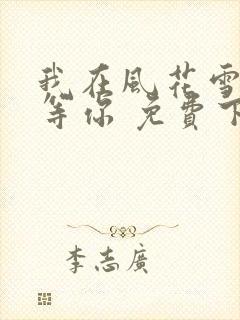 我在風花雪
等你 免費下
李志廣